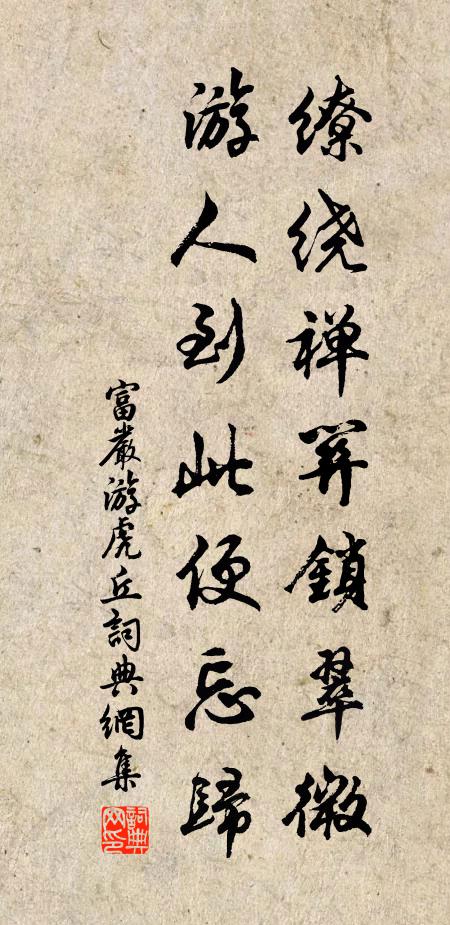 缭绕禅关鎖翠微
游人到此便忘歸
富嚴游虎丘詞典網集
詞典网印